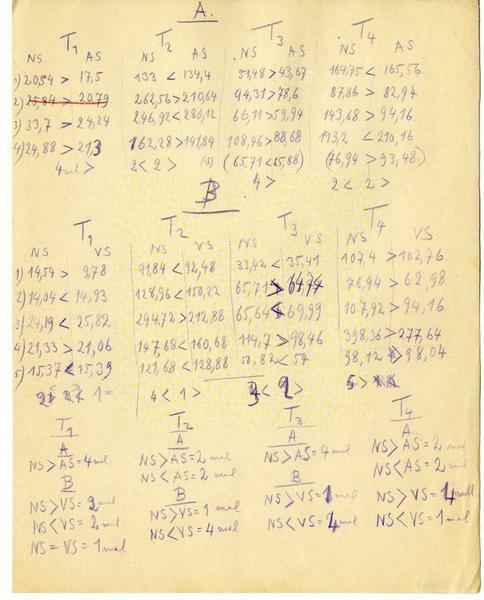 A.
T1 T2 T3 T4
NS AS NS AS NS AS NS AS
1) 20,54 > 17,5 133 < 134,4 51,48 > 43,67 164,75 < 165,56
2) 25,84 > 20,79 262,56 > 210,64 94,31 > 78,6 87,86 > 82,94
3) 33,7 > 24,24 246,92 < 280,12 66,11 > 59,94 143,68 > 94,16
4) 24,88 > 21,3 162,28 > 141,84 108,96 > 88,68 193,2 < 210,16
(65,71 < 65,88) (76,94 > 93,48)
4 mal > 2 < 2 > 4 > 2 < 2 >
B
T1 T2 T3 T4
NS VS NS VS NS VS NS VS
1) 14,54 > 9,78 91,84 < 92,48 33,42 < 35,41 107,4 > 102,76
2) 14,04 < 14,93 128,96 < 150,22 65,71 > 76,94 > 62,98
3) 24,19 < 25,82 294,72 > 212,88 65,64 < 69,99 107,92 > 94,16
4) 21,33 > 21,06 147,68 < 160,68 114,7 > 98,46 398,36 > 277,64
5) 15,37 < 15,39 121,68 < 128,88 50,82 < 54 98,12 > 98,04
1 = 4 < 1 > 5 >
T1 T2 T3 T4
A A A A
NS > AS = 4 mal NS > AS = 2 mal NS > AS = 4 mal NS > AS = 2 mal
NS < AS = 2 mal NS < AS = 2 mal
B B B
NS > VS = 2 mal NS > VS = 1 mal NS > VS = NS > VS = 4 mal
NS < VS = 2 mal. NS < VS = 4 mal NS < VS = mal NS < VS = 1 mal
NS = VS = 1 mal